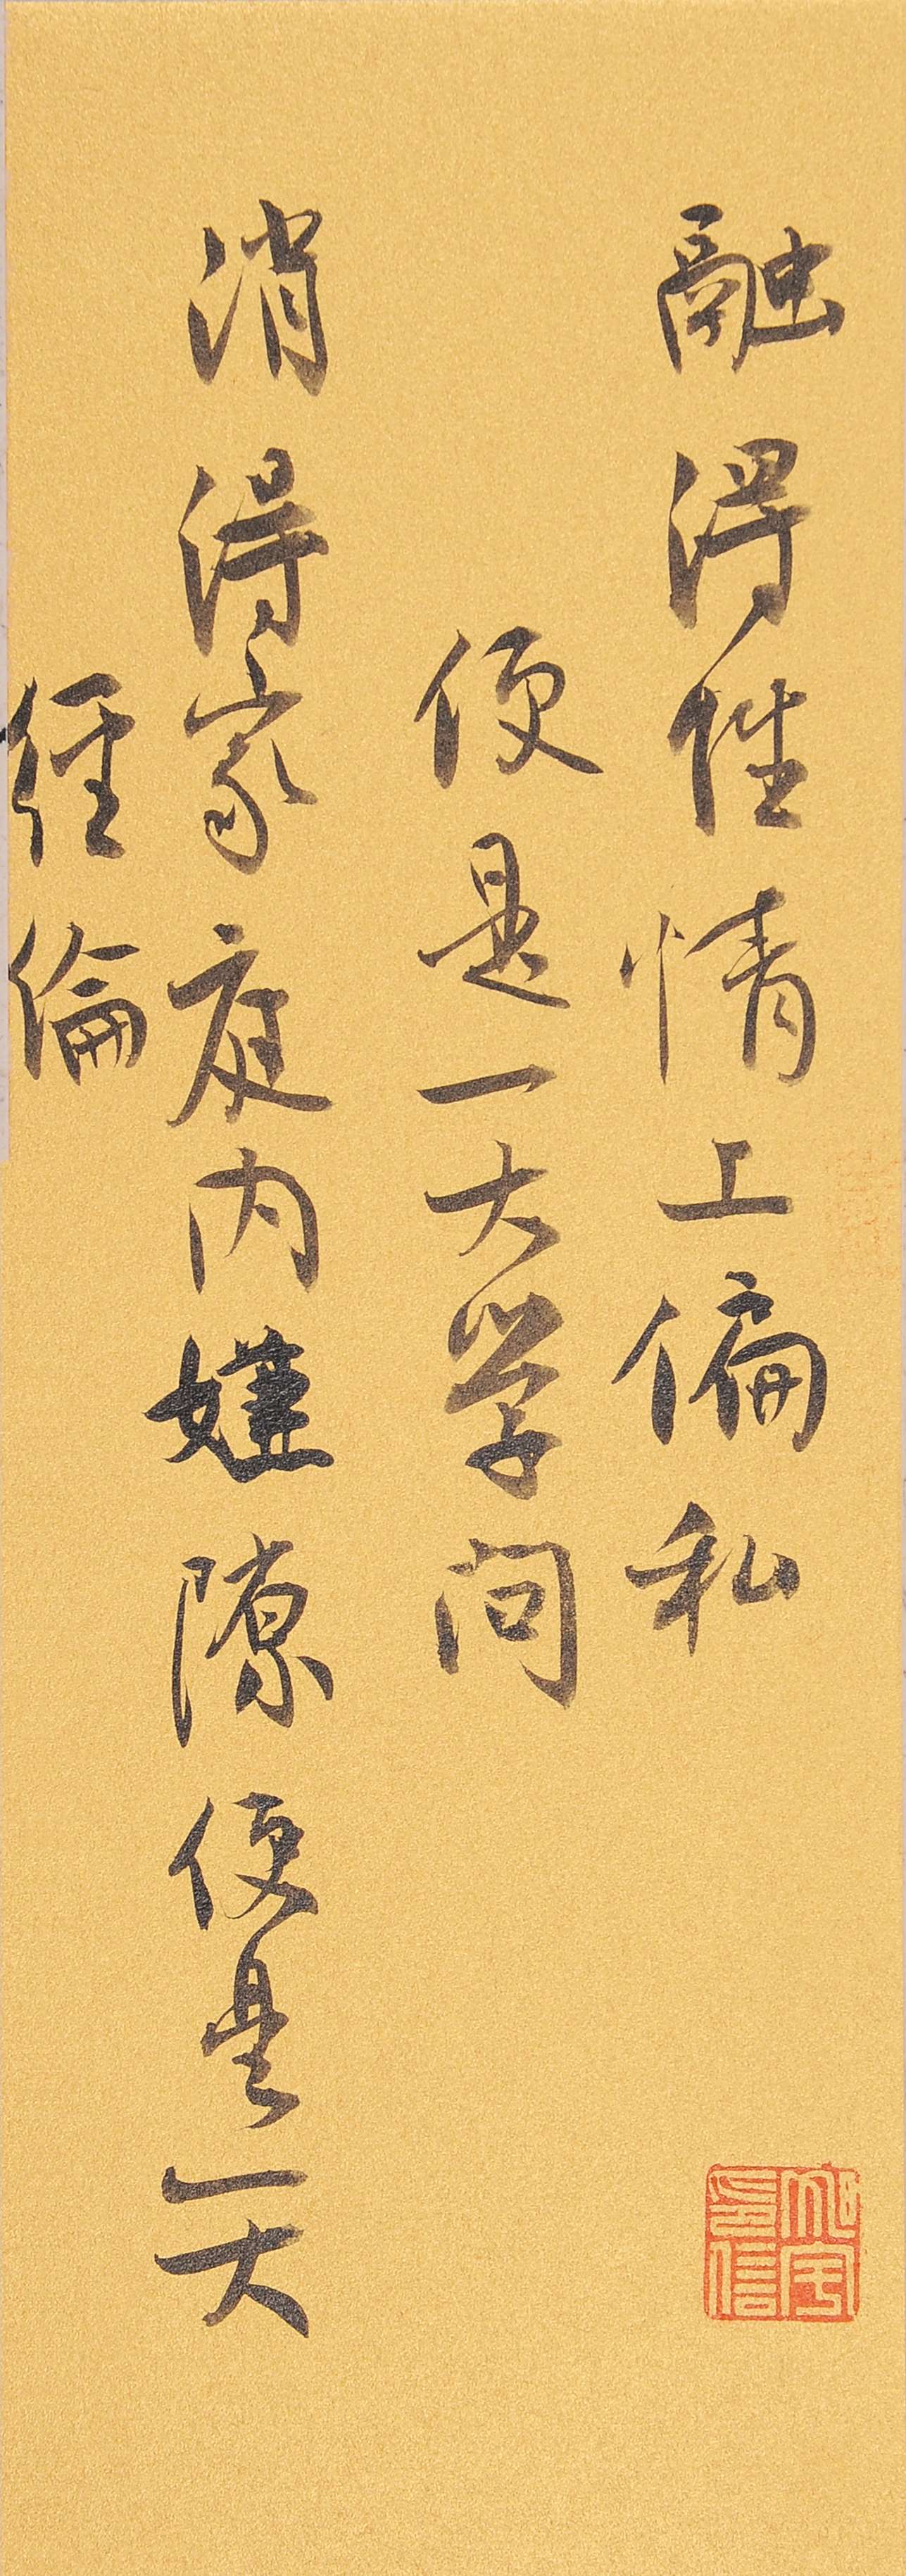 融得性情上偏私
便是一大学问
消得家庭内嫌隙便是一大
經綸